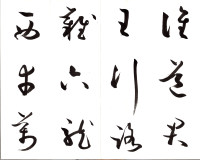 誰道君
王行路
難六龍
西幸萬